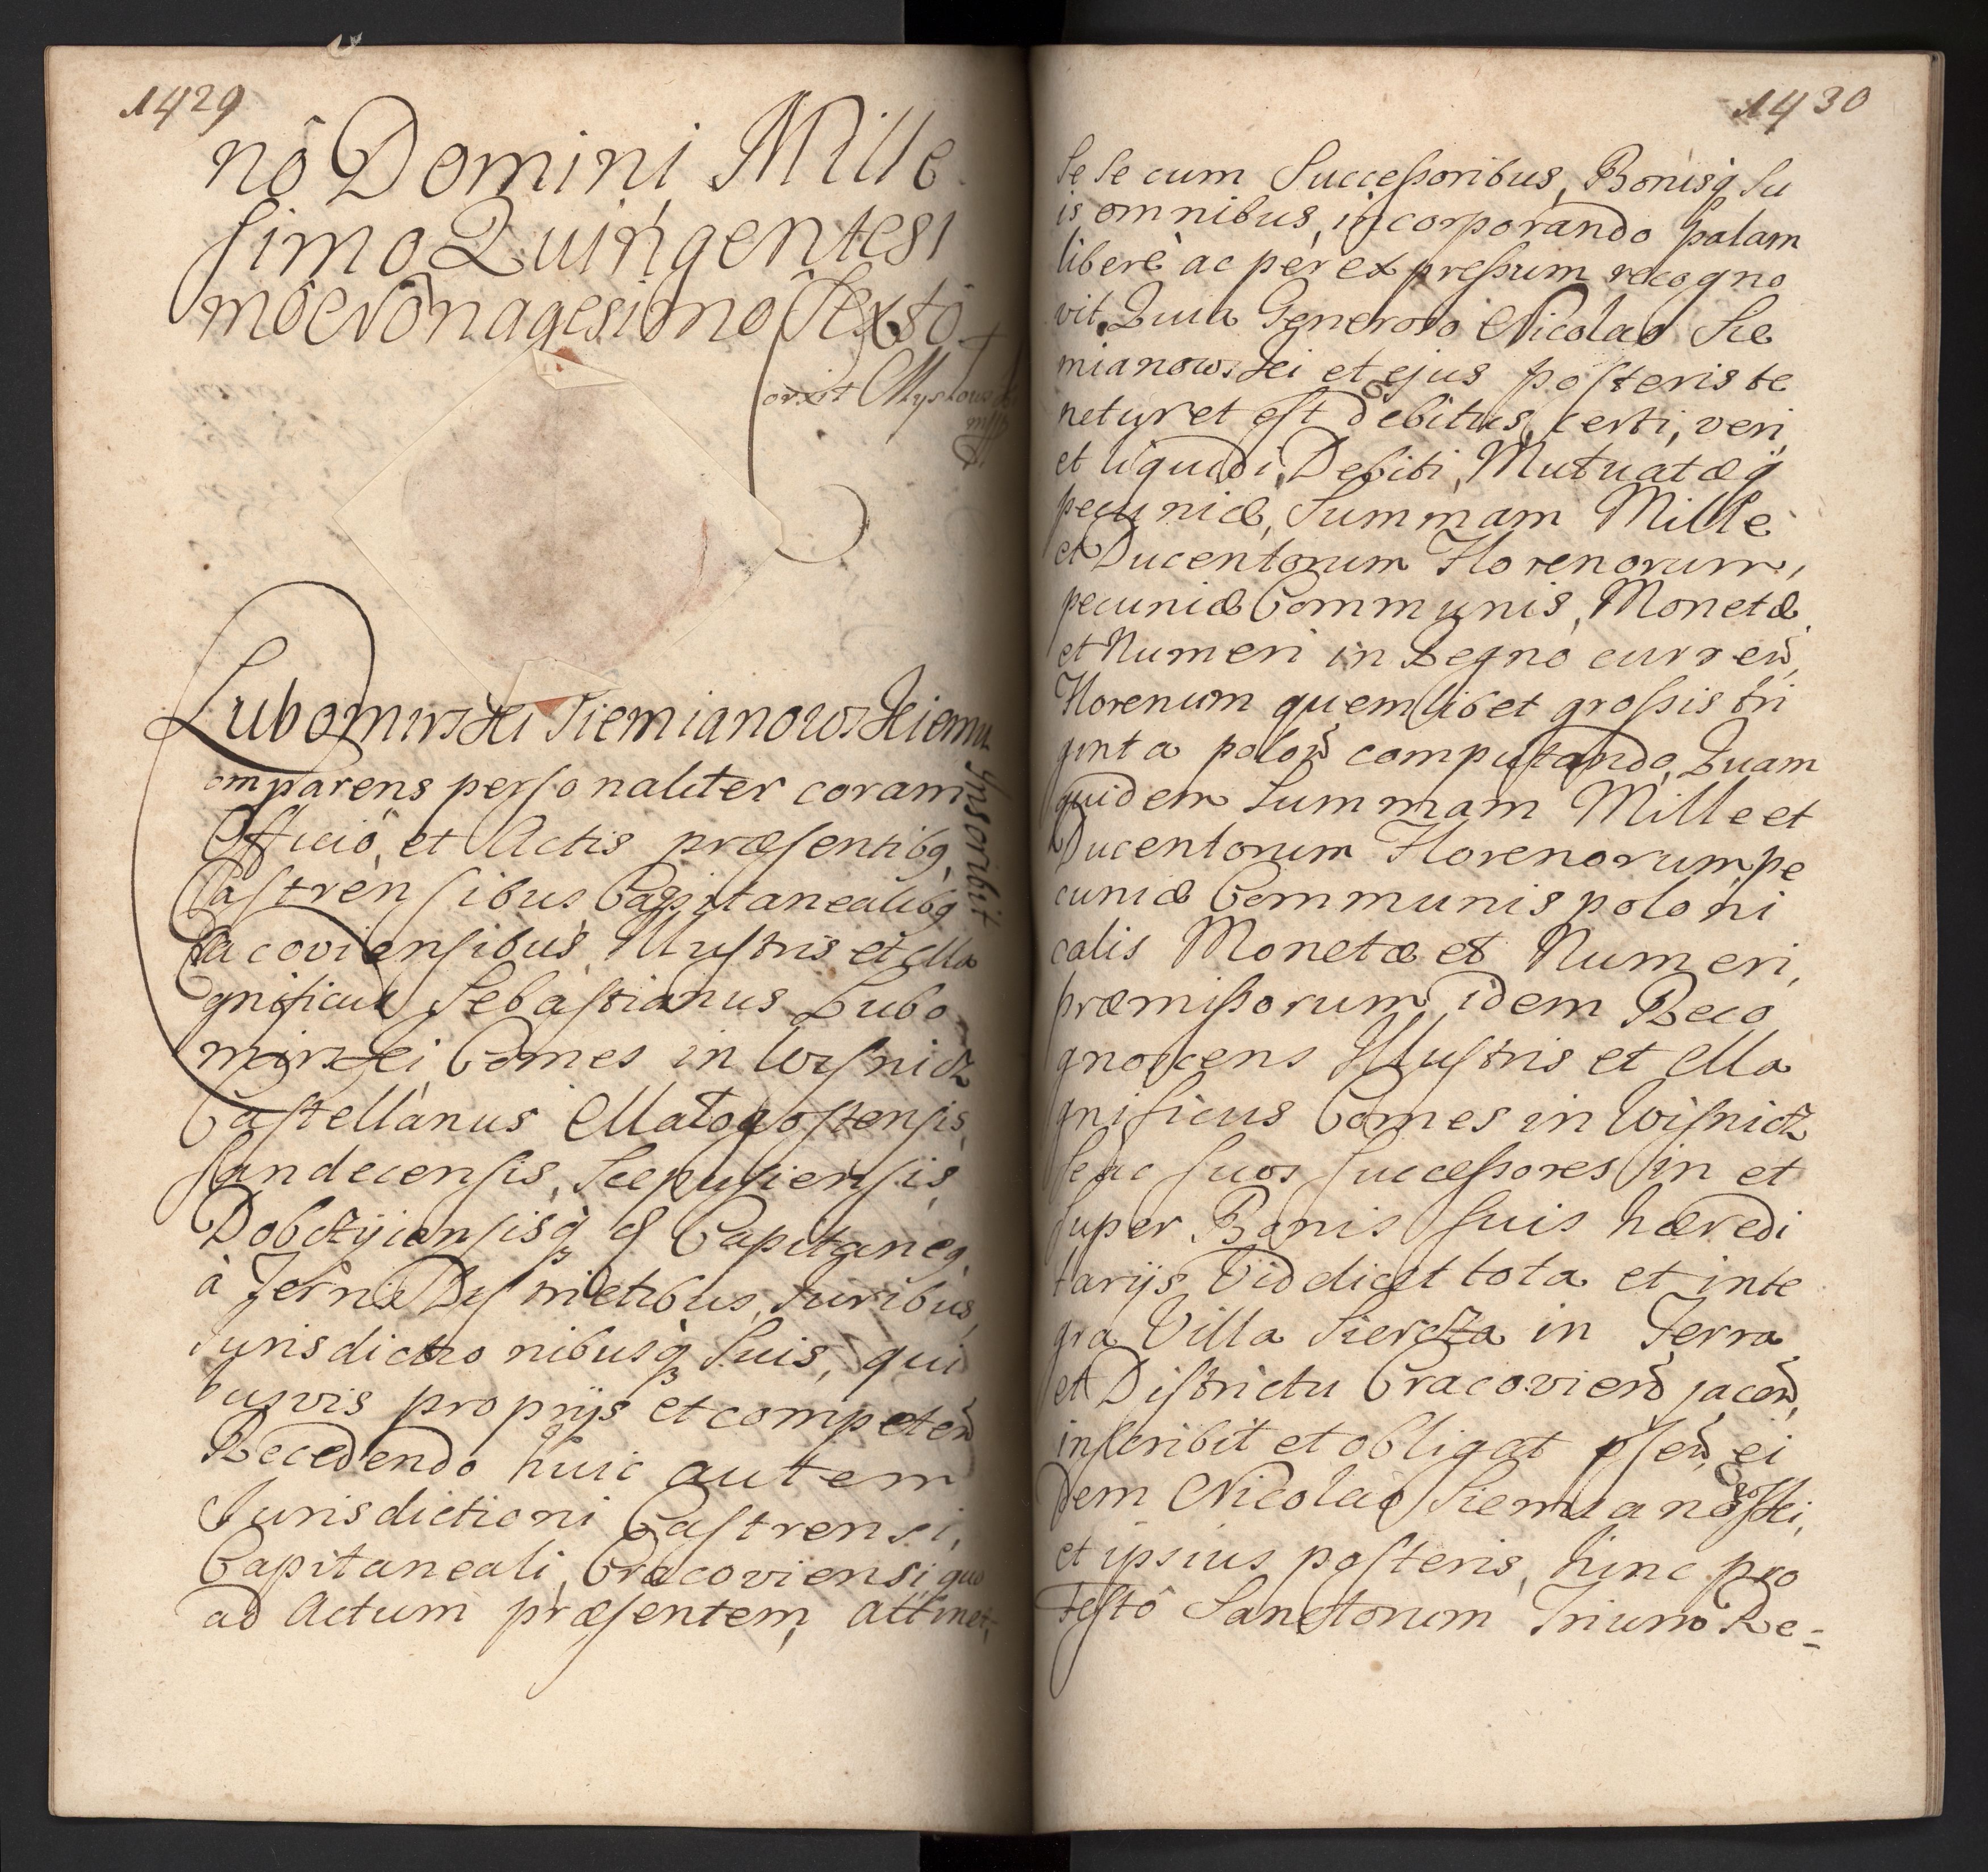 1429
nô Domini Mille
simo Quingentesi
mô Nonagesimo Sexto
Lubomirski Siemianowskiemu
Inscribit
omparens personaliter coram
Officiô, et Actis præsentibq
Castrensibus Capitanealibq
Cracoviensibus, Illustris et Ma
gnificus Sebastianus Lubo
mirski Comes in Wisnicz
Castellanus Małogostensis,
Sandecensis, Scepusiensis,
Dobczÿiensisq et Capitaneq
à Terræ Districtibus, Juribus,
Jurisdictionibusq Suis, qui
busvis proprijs et competen
Recedendo huic autem
Jurisdictioni Castrensi,
Capitaneali, Cracoviensi quo
ad Actum præsentem, attinet,
1430
Se Se cum Successoribus, Bonisq Su
is omnibus, incorporando palam
liberè ac per expressum recogno
vit, Quia Generoso Nicolao Sie
mianowski et ejus posteris te
netur et est debitus, certi, veri,
et liquidi, Debiti, Mutuatæq
pecuniæ, Summam Mille
et Ducentorum Florenorum,
pecuniæ Communis, Monetæ
et Numeri in Regno curren
Florenum quemlibet grossis tri
ginta polon computando, Quam
quidem Summam Mille et
Ducentorum Florenorum, pe
cuniæ Communis poloni
calis Monetæ et Numeri,
præmissorum, idem Reco
gnoscens Illustris et Ma
gnificus Comes in Wisnicz
se ac suos successores in et
super Bonis suis hæredi
tarijs Videlicet tota et inte
gra Villa Siercza in Terra
et Districtu Cracovien jacen,
inscribit et obligat psen, ei
dem Nicolao Siemianowski,
et ipsius posteris, hinc pro
Festô Sanctorum Trium Re-